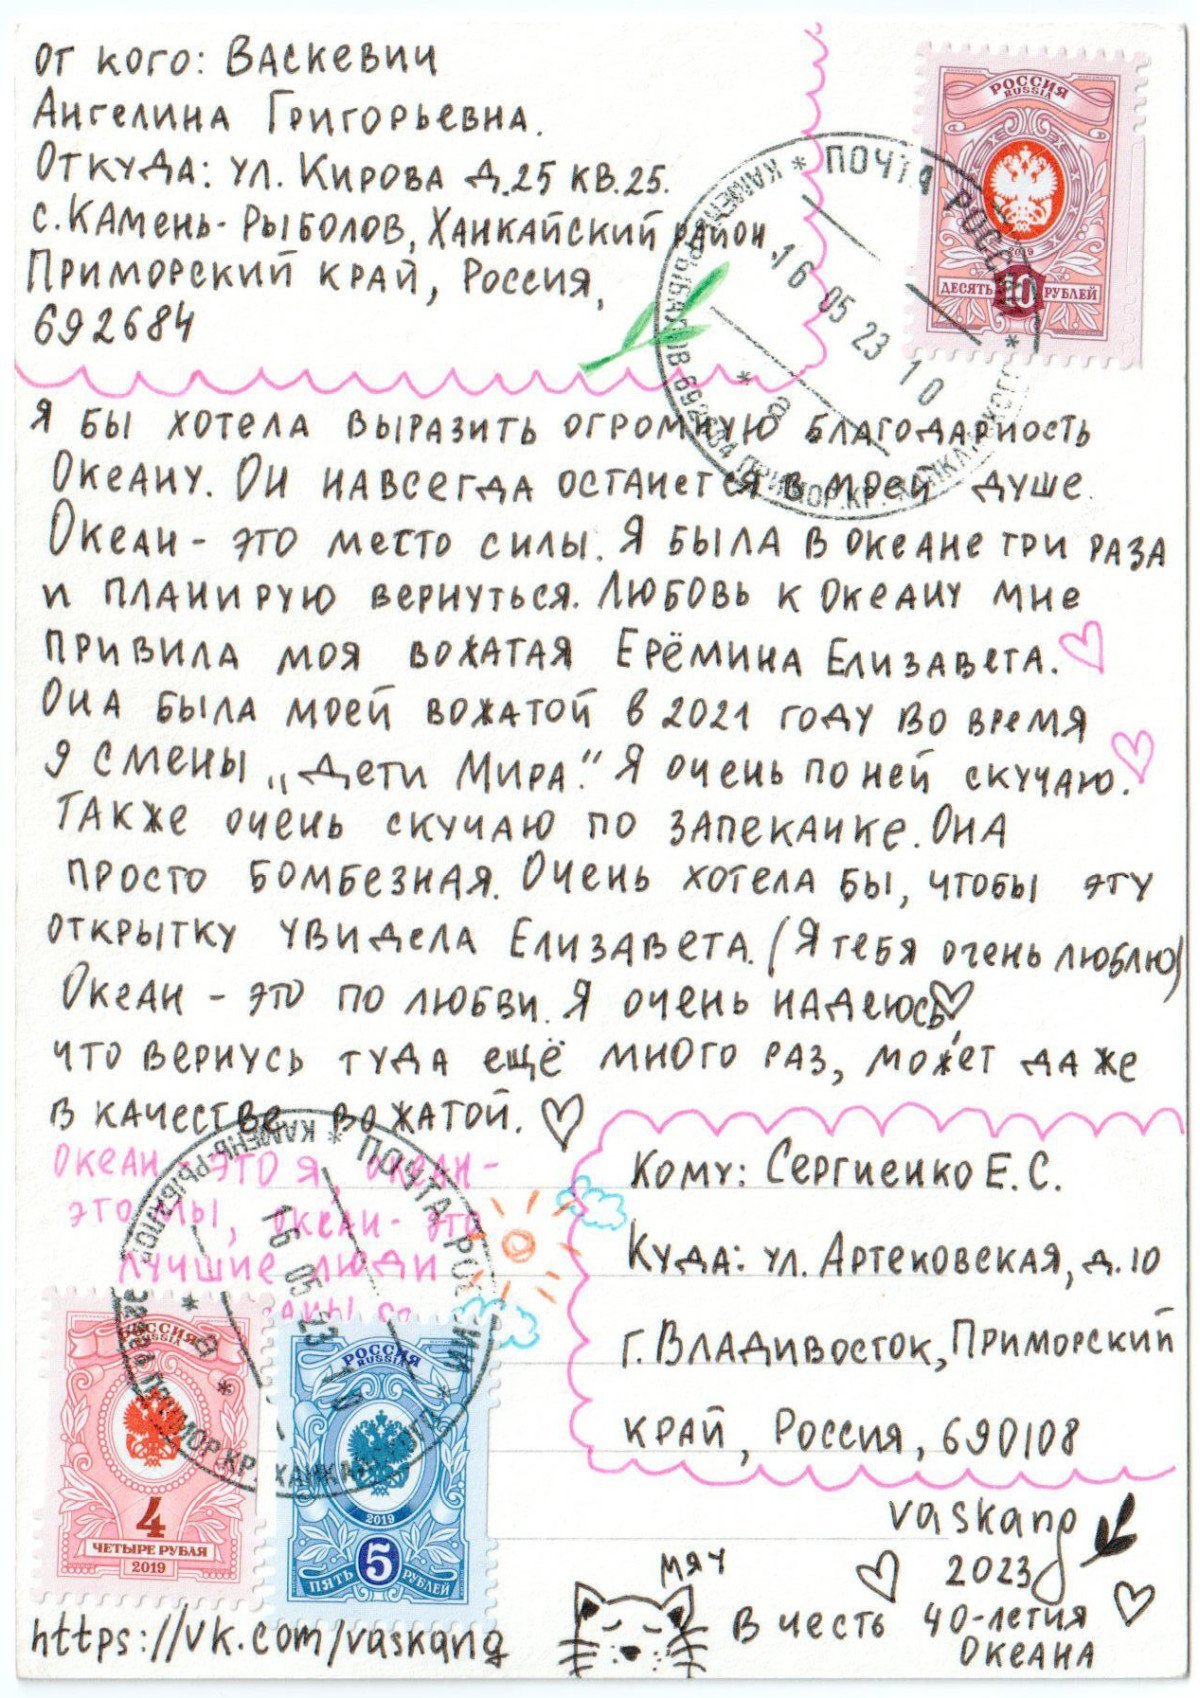 От кого: Васкевич
Ангелина Григорьевна.
Откуда: ул. Кирова д.25 кв.25.
с. Камень-Рыболов, Ханкайский район
Приморский край, Россия,
692684
РОССИЯ
RUSSIA
2019
ДЕСЯТЬ 10 РУБЛЕЙ
ПОЧТА РОССИИ
16 05 23 10
8
Я бы хотела выразить огромную благодарность
Океану. Он навсегда останется в моей душе.
Океан - это место силы. Я была в океане три раза
и планирую вернуться. Любовь к океану мне
привила моя вожатая Ерёмина Елизавета.
Она была моей вожатой в 2021 году во время
9 смены „Дети Мира." Я очень по ней скучаю.
Также очень скучаю по запеканке. Она
просто бомбезная. Очень хотела бы, чтобы эту
открытку увидела Елизавета. (Я тебя очень люблю)
Океан - это по любви. Я очень надеюсь,
что вернусь туда ещё много раз, может даже
в качестве вожатой.
Океан - это я, океан -
это мы, океан - это
лучшие люди
Кому: Сергиенко Е.С.
Куда: ул. Артековская, д.10
г. Владивосток, Приморский
край, Россия, 690108
ПОЧТА РОССИИ
КАМЕНЬ-РЫБОЛОВ
16 05 23 10
8
РОССИЯ
RUSSIA
4
ЧЕТЫРЕ РУБЛЯ
2019
РОССИЯ
RUSSIA
2019
ПЯТЬ 5 РУБЛЕЙ
https://vk.com/vaskang
мяу
vaskang
2023
В честь 40-летия
Океана